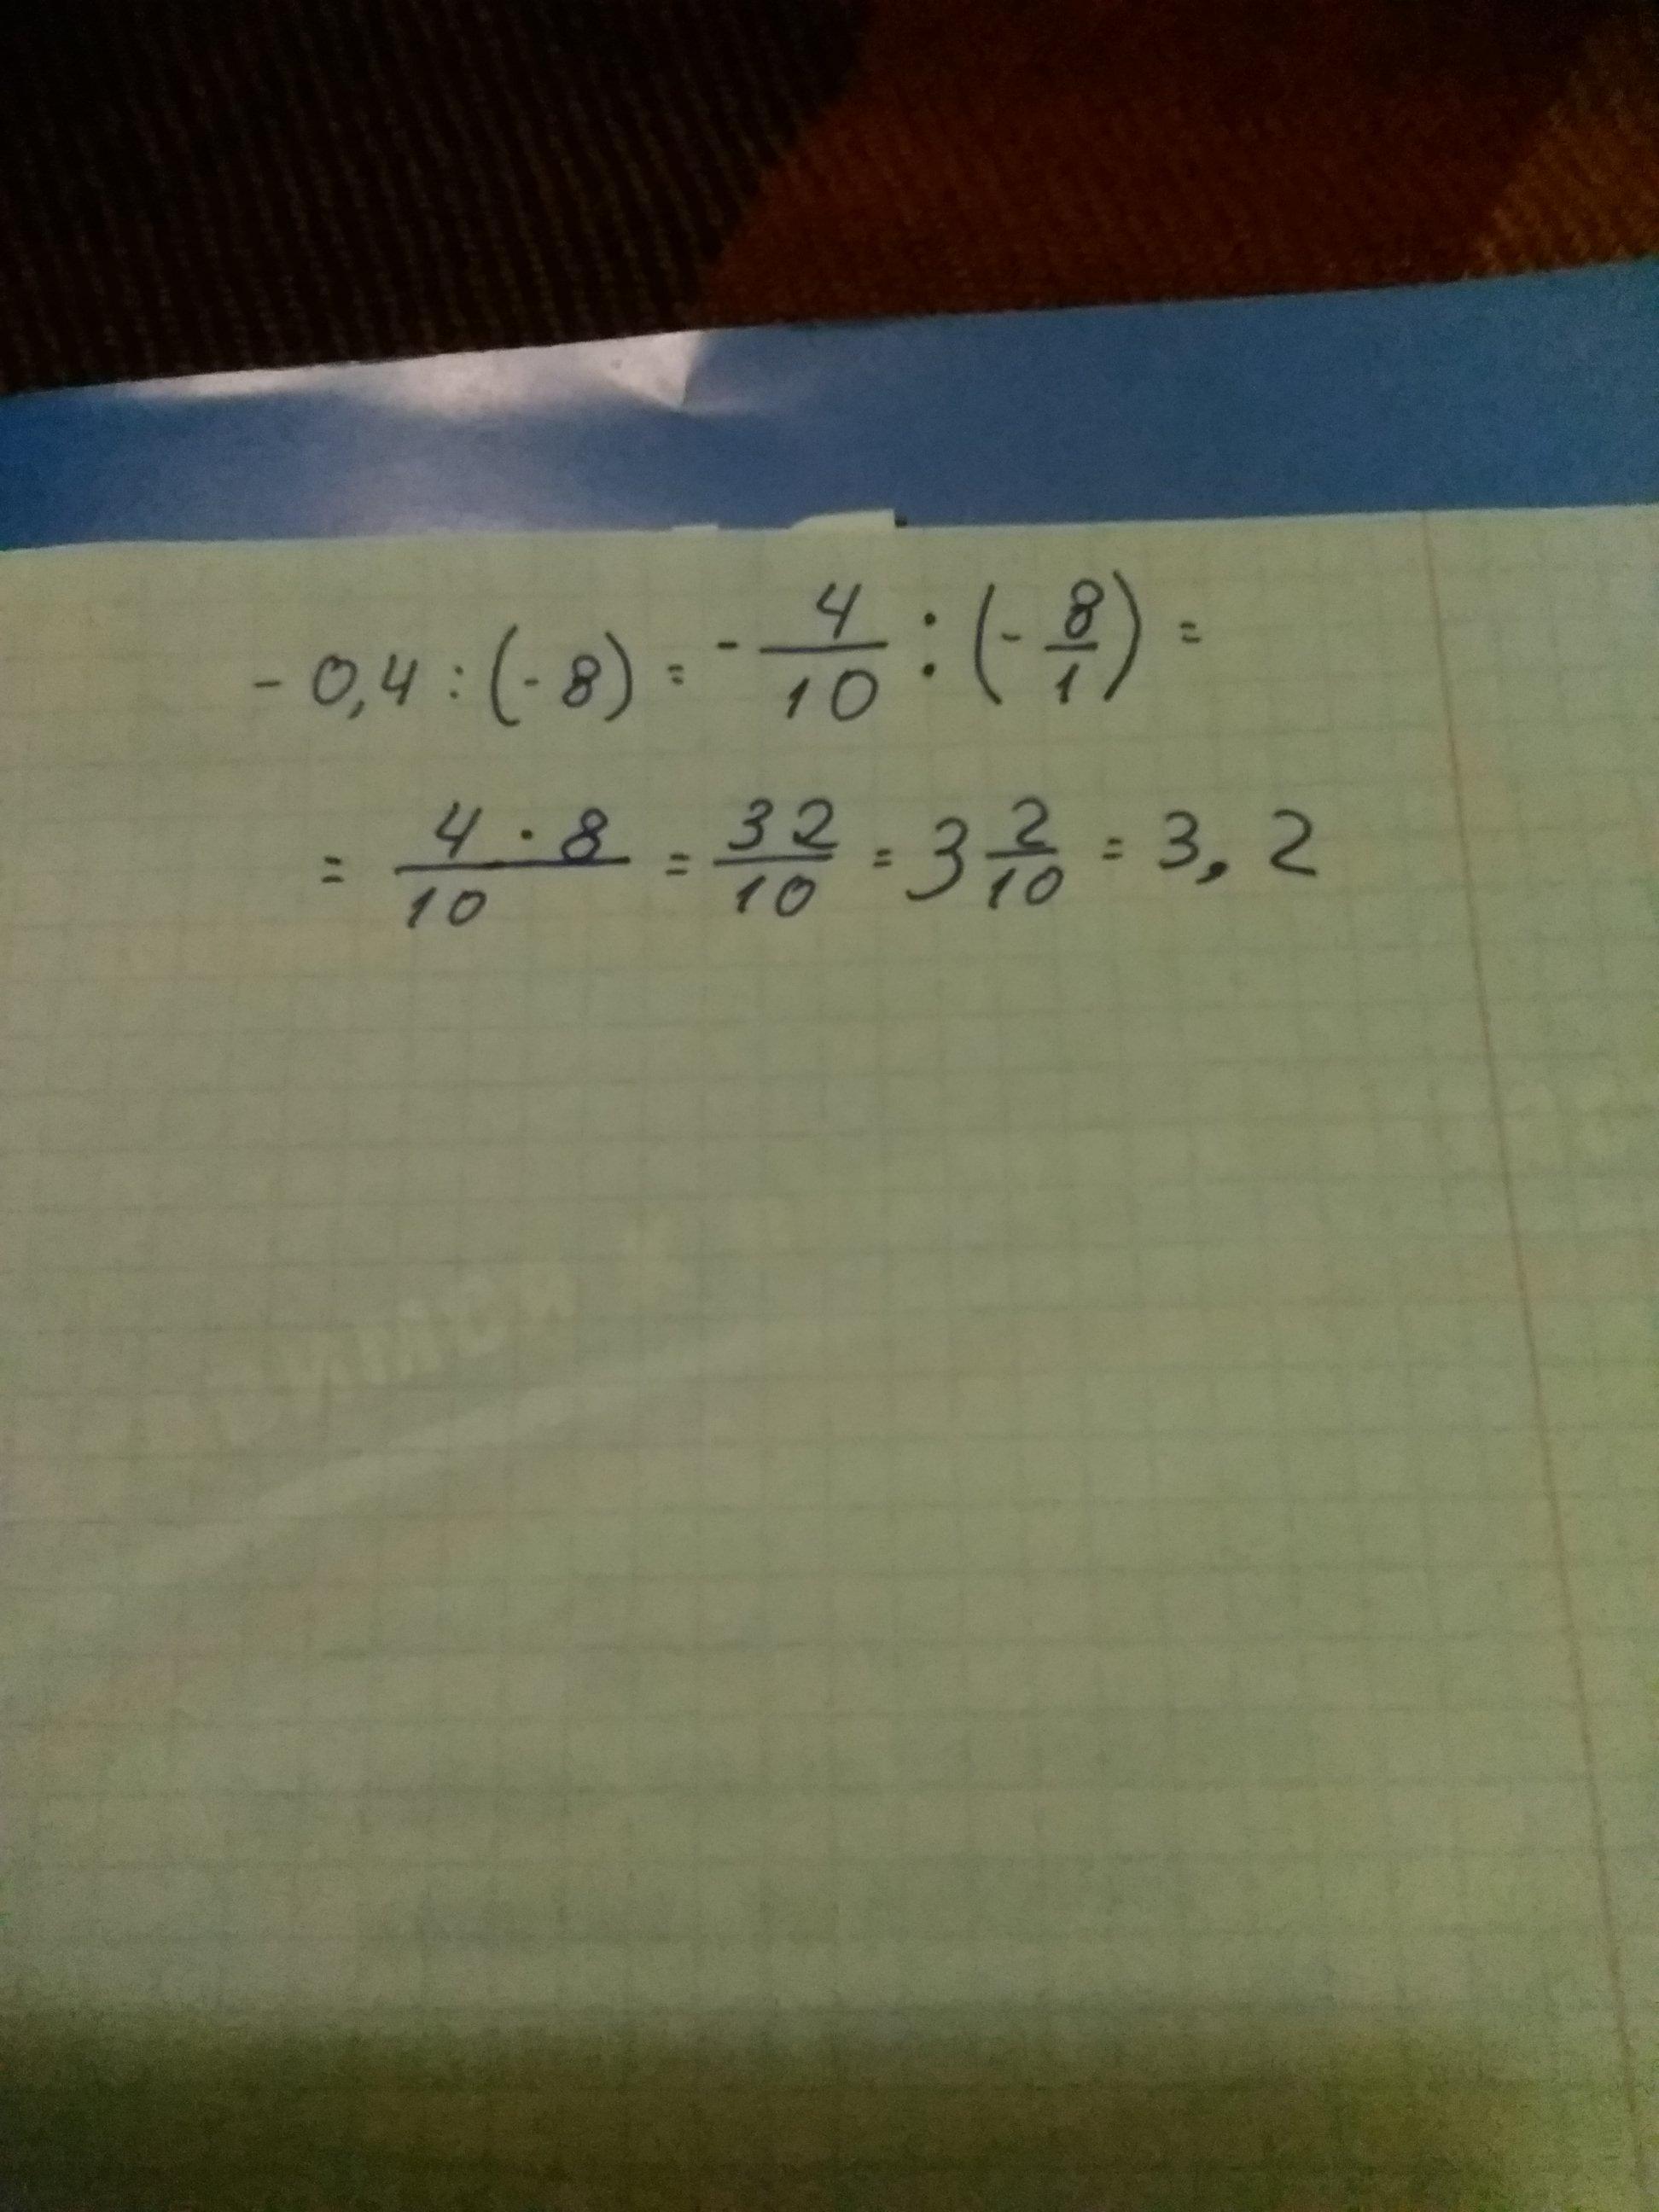 - 0,4 : (- 8) = - 4/10 : (- 8/1) =
= 4 · 8/10 = 32/10 = 3 2/10 = 3,2